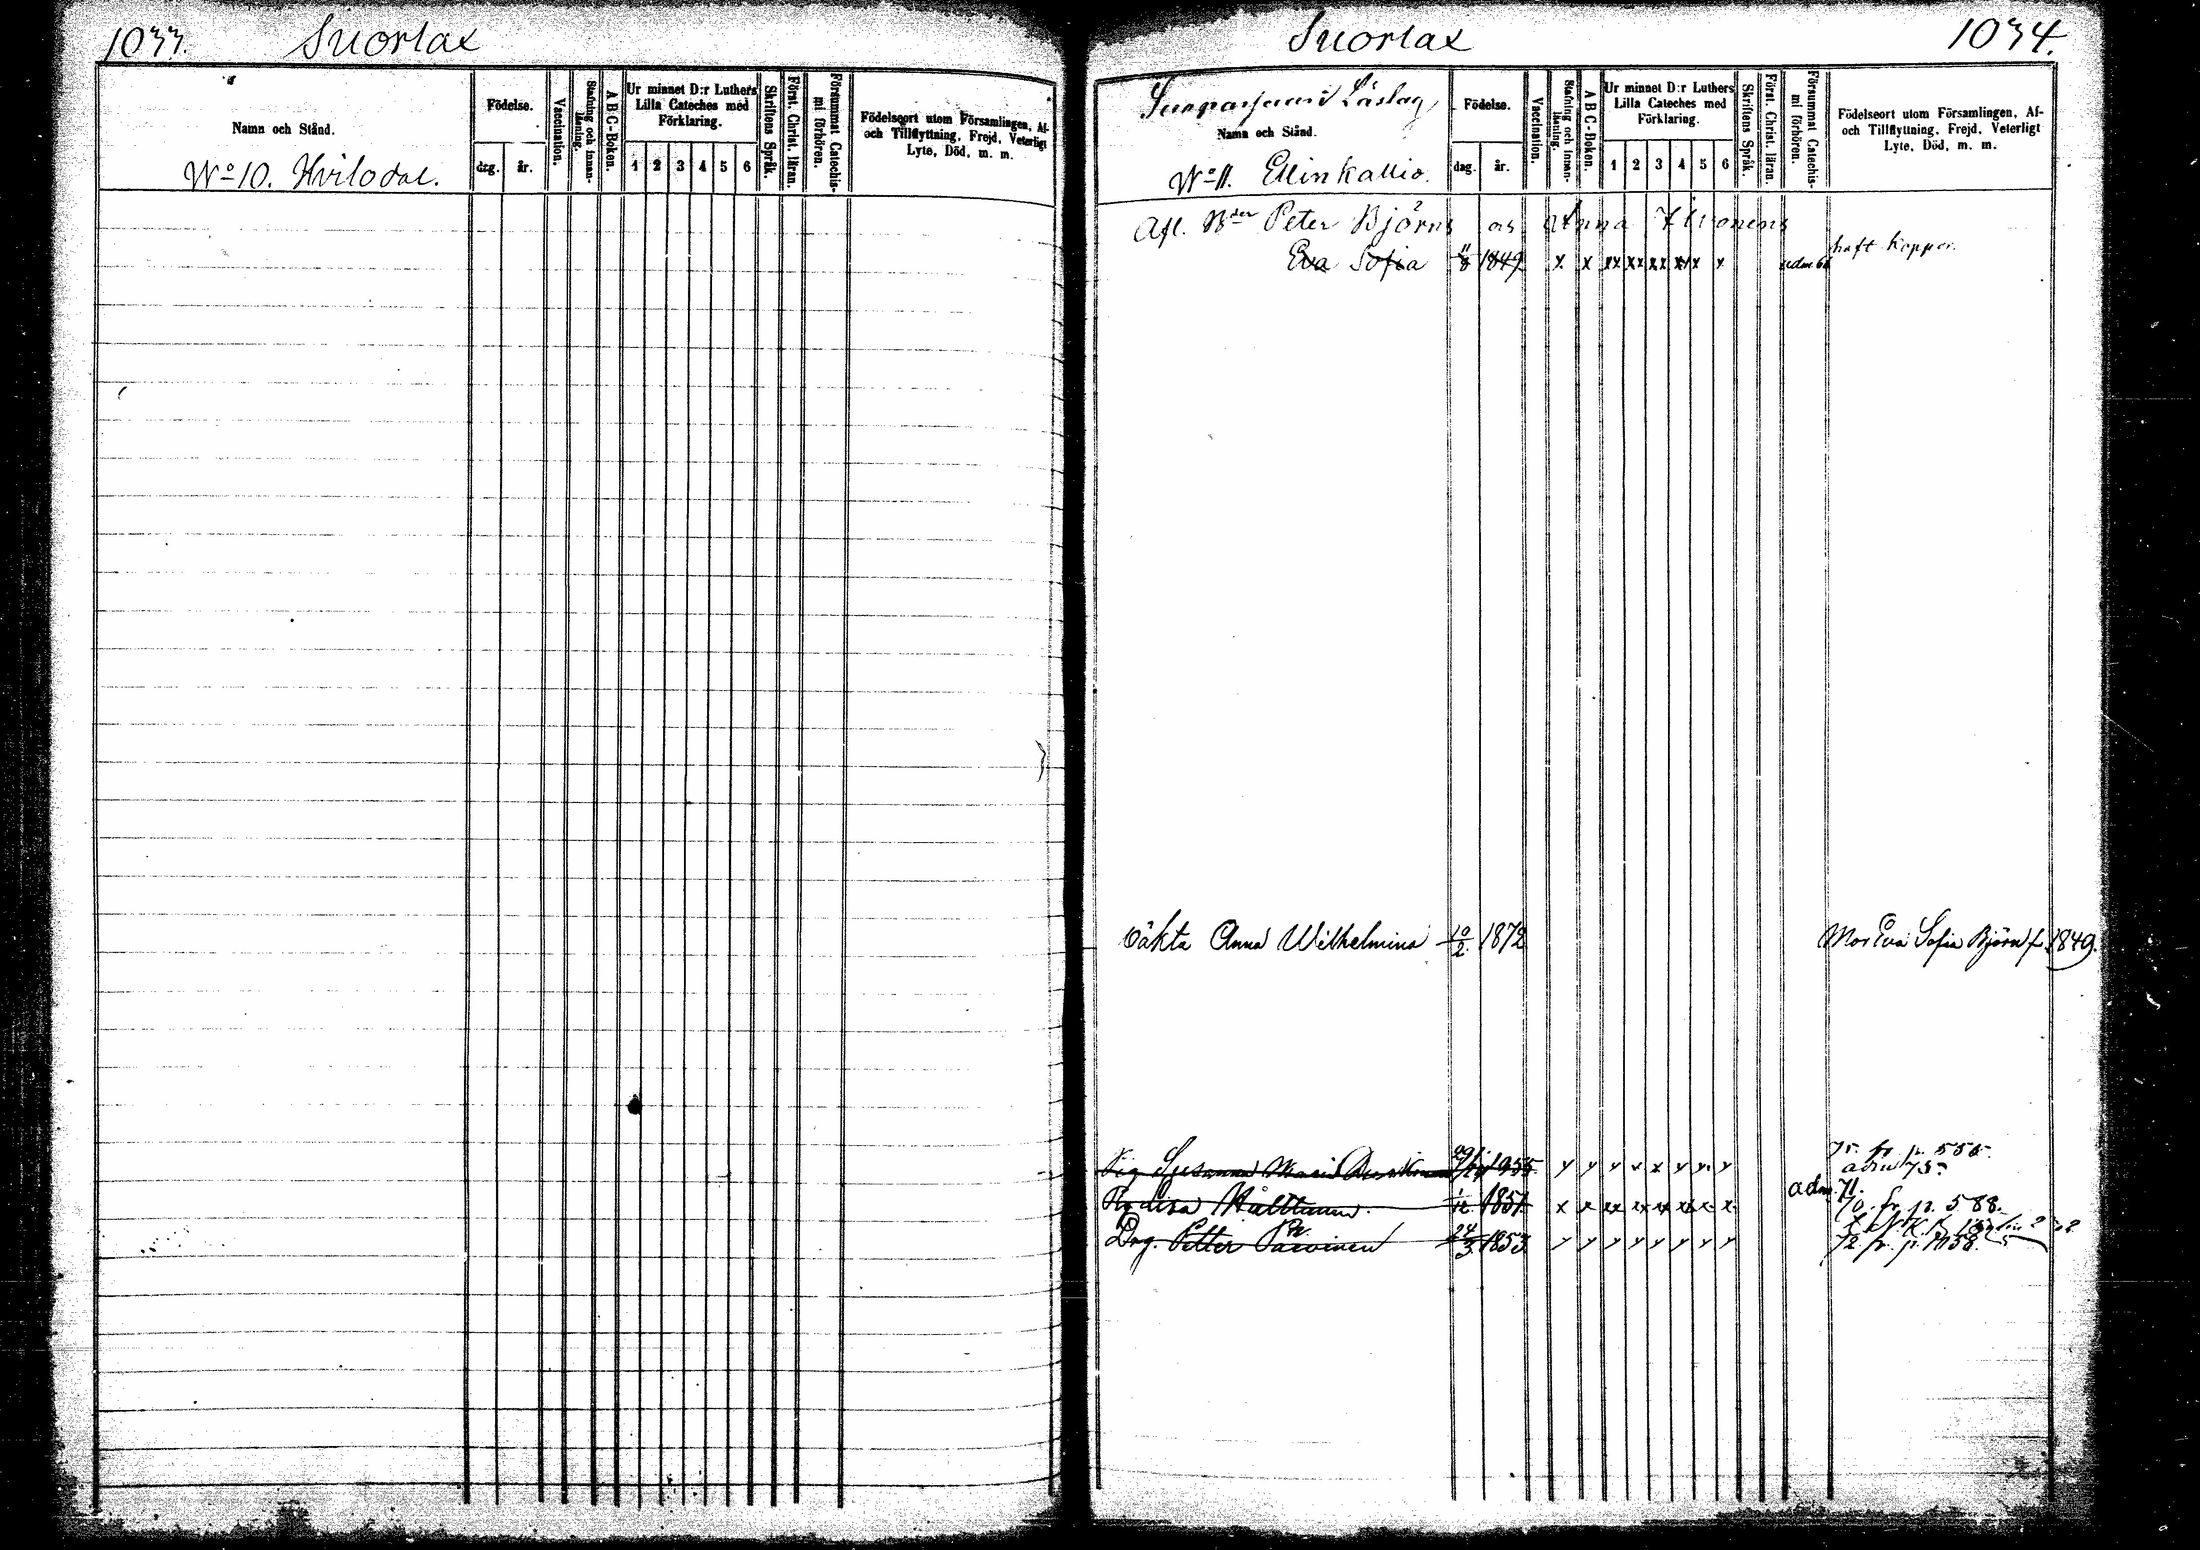 1033. Suorlax
Namn och Stånd.
Födelse.
dag. år.
Vaccination.
Stafning och innan-läsning.
A B C-Boken.
Ur minnet D:r Luthers
Lilla Cateches med
Förklaring.
1 2 3 4 5 6
Skriftens Språk.
Först. Christ. läran.
Försummat Catechis-
mi förhören.
Födelseort utom Församlingen, Af-
och Tillflyttning, Frejd, Veterligt
Lyte, Död, m. m.
No 10. Hvilodal.
Suorlax 1034.
Läslag
Namn och Stånd.
Födelse.
dag. år.
Vaccination.
Stafning och innan-läsning.
A B C-Boken.
Ur minnet D:r Luthers
Lilla Cateches med
Förklaring.
1 2 3 4 5 6
Skriftens Språk.
Först. Christ. läran.
Försummat Catechis-
mi förhören.
Födelseort utom Församlingen, Af-
och Tillflyttning, Frejd, Veterligt
Lyte, Död, m. m.
No 11. Ellinkallio.
Afl. Bder Peter Björns och Anna
Eva Sofia 11/8 1849 x x xx xx xx xx x x adm 66 haft koppor.
oäkta Anna Wilhelmina 10/2 1872 Mor Eva Sofia Björn f. 1849.
Pig Susanna Maria 1855 y y y x x y y y 75 fr. p. 555
adm 73
adm. 71.
Lisa 1/12 1851 x x xx xx xx xx x x 70. fr. p. 588.
Drg. Petter Parvinen 24/3 1853 y y y y y y y y 72 fr. p. 1058.